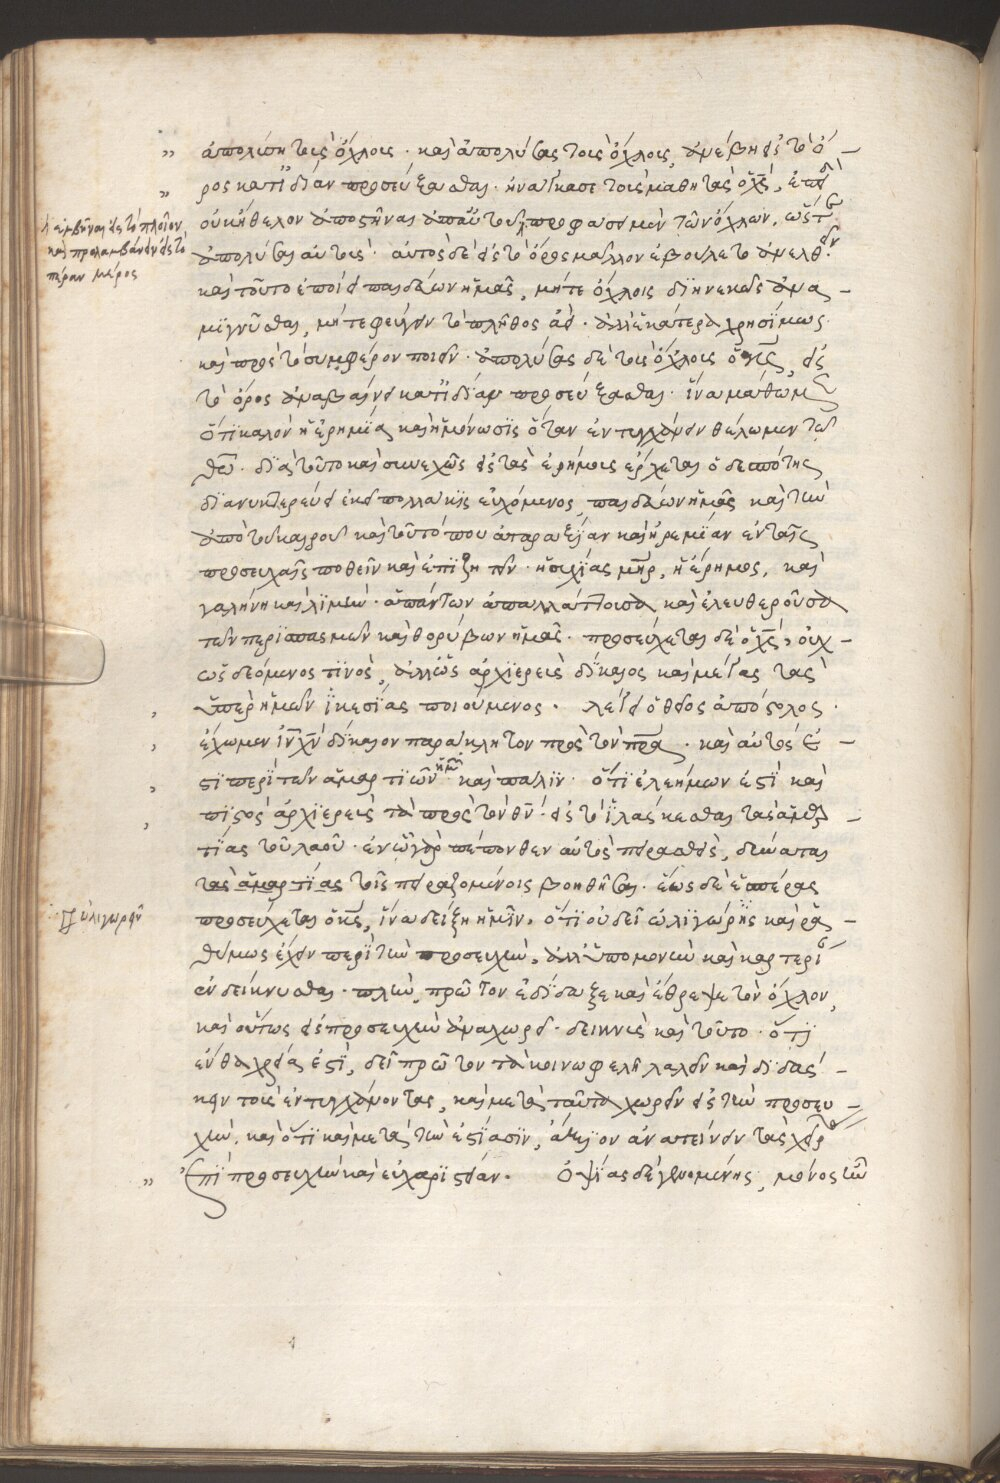 ἀπολύση τοὺς ὄχλους · καὶ ἀπολύσας τοὺς ὄχλους, ἀνέβη εἰς τὸ ὄ–
ρος κατ' ἰδίαν προσεύξασθαι · ἠνάγκασε τοὺς μαθητὰς ὁ χς, ἐπεὶ
οὐκ ἤθελον ἀποστῆναι ἀπ' αὐτοῦ, προφάσει μὲν τῶν ὄχλων, ὥστε
ἡ ἐμβῆναι εἰς τὸ πλοῖον,
καὶ προλαμβάνειν εἰς τὸ
πέραν μέρος
ἀπολύσαι αὐτούς · αὐτὸς δὲ εἰς τὸ ὄρος μᾶλλον ἐβούλετο ἀνελθεῖν.
καὶ τοῦτο ἐποίει παιδεύων ἡμᾶς, μήτε ὄχλοις διηνεκῶς ἀνα–
μίγνυσθαι, μήτε φεύγειν τὸ πλῆθος ἀεί · ἀλλ' ἑκάτερα χρησίμως
καὶ πρὸς τὸ συμφέρον ποιεῖν · ἀπολύσας δὲ τοὺς ὄχλους ὁ ις, εἰς
τὸ ὄρος ἀναβαίνει κατ' ἰδίαν προσεύξασθαι · ἵνα μάθωμεν
ὅτι καλὸν ἡ ἐρημία καὶ ἡ μόνωσις ὅταν ἐντυγχάνειν θέλωμεν τῷ
θῶ · διὰ τοῦτο καὶ συνεχῶς εἰς τὰς ἐρήμους ἔρχεται ὁ δεσπότης
διανυκτερεύει ἐκεῖ πολλάκις εὐχόμενος, παιδεύων ἡμᾶς καὶ τὴν
ἀπὸ τοῦ καιροῦ καὶ τοῦ τόπου ἀταραξίαν καὶ ἠρεμίαν ἐν ταῖς
προσευχαῖς ποθεῖν καὶ ἐπιζητεῖν · ἡσυχίας μηρ, ἡ ἔρημος, καὶ
γαλήνη καὶ λιμήν · ἁπάντων ἀπαλλάττουσα καὶ ἐλευθεροῦσα
τῶν περισπασμῶν καὶ θορύβων ἡμᾶς · προσεύχεται δὲ ὁ χς, οὐχ
ὡς δεόμενός τινος, ἀλλ' ὡς ἀρχιερεὺς δίκαιος καὶ μέγας τὰς
ὑπὲρ ἡμῶν ἱκεσίας ποιούμενος · λέγει ὁ θεῖος ἀπόστολος ·
ἔχωμεν ιν χν δίκαιον παράκλητον πρὸς τὸν πρα · καὶ αὐτὸς ἐ–
στι περὶ τῶν ἁμαρτιῶν ἡμῶν · καὶ πάλιν · ὅτι ἐλεήμων ἐστὶ καὶ
πιστὸς ἀρχιερεὺς τὰ πρὸς τὸν θν · εἰς τὸ ἱλάσκεσθαι τὰς ἁμαρ–
τίας τοῦ λαοῦ · ἐν ᾧ γὰρ πέπονθεν αὐτὸς πειρασθεὶς, δύναται
τὰς ἁμαρτίας τοῖς πειραζομένοις βοηθῆσαι · ἕως δὲ ἑσπέρας
προσεύχεται ὁ κς, ἵνα δείξῃ ἡμῖν, ὅτι οὐ δεῖ ὀλιγώρως καὶ ῥᾳ–
ὀλιγωρεῖν
θύμως ἔχειν περὶ τὴν προσευχὴν, ἀλλ' ὑπομονὴν καὶ καρτερίαν
ἐνδείκνυσθαι · πλὴν, πρῶτον ἐδίδαξε καὶ ἔθρεψε τὸν ὄχλον,
καὶ οὕτως εἰς προσευχὴν ἀναχωρεῖ · δεικνὺς καὶ τοῦτο · ὅτι
ἔνθα χρεία ἐστὶ, δεῖ πρῶτον τὰ κοινωφελῆ λαλεῖν καὶ διδάσ–
κειν τοὺς ἐντυγχάνοντας, καὶ μετὰ ταῦτα χωρεῖν εἰς τὴν προσευ–
χήν, καὶ ὅτι καὶ μετὰ τὴν ἑστίασιν, ἄξιον ἀνατείνειν τὰς χεῖρας
ἐπὶ προσευχὴν καὶ εὐχαριστίαν. Ὀψίας δὲ γενομένης, μόνος ἦν